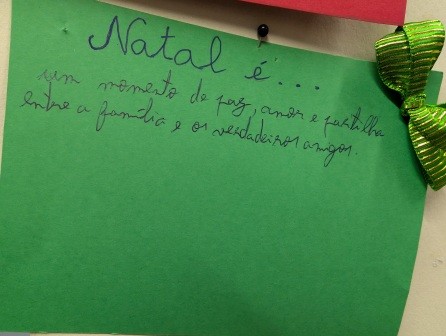 Natal é...
um momento de paz, amor e partilha
entre a família e os verdadeiros amigos.